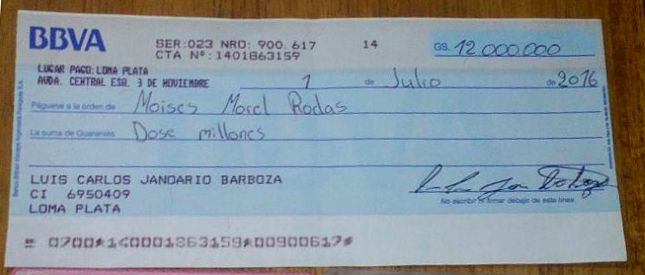 BBVA
SER:023 NRO: 900.617 14 GS. 12 000 000
CTA N°:1401863159
LUGAR PAGO:LOMA PLATA
AVDA. CENTRAL ESQ. 3 DE NOVIEMBRE
1 de Julio de 2016
Páguese a la orden de Moises Morel Rodas
La suma de Guaraníes Dose millones
LUIS CARLOS JANDARIO BARBOZA
CI 6950409
LOMA PLATA
No escribir ni firmar debajo de esta línea
0700 140001863159 00900617